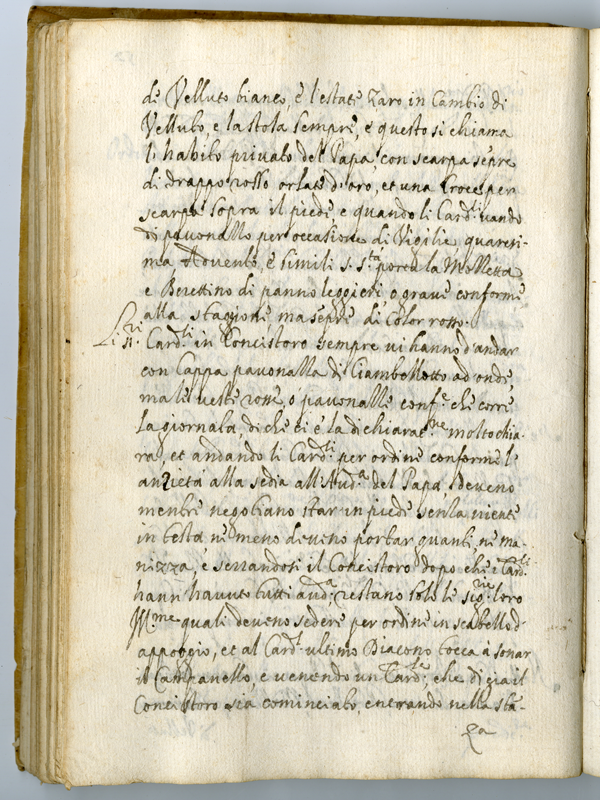 di Velluto bianco, è l'estate Zaro in Cambio di
Velluto, e la stola sempre, e questo si chiama
l'habito privato del Papa, con scarpa sēpre
di drappo rosso orlate d'oro, et una Croce per
scarpa sopra il piede, e quando li Card.li vanno
di pavonazzo per occasione di Vigilie, quaresi-
ma Advento, è simili S. S.ta porta la Mozzetta
e Berettino di panno leggieri o grave conforme
alla stagione, ma sēpre di Color rosso.
Li SS.ri Card.li in Concistoro sempre vi hanno d'andar
con Cappa pavonazza di Ciambellotto ad onde
ma le veste rosse, o pavonazze conf.e che corre
la giornata di che ci è la dichiarat.ne molto chia-
ra, et andando li Card.li per ordine conforme l'
anzietà alla sedia all'Aud.a del Papa, Deveno
mentre negotiano star in piedi senza niente
in testa ne meno deveno portar guanti, ne ma-
nizza, e serrandosi il Concistoro dopo che i Card.li
hann havuto tutti aud.a, restano solo le sig.rie loro
Ill.me quali deveno sedere per ordine in scabello d'
appoggio, et al Card.l ultimo Diacono tocca à sonar
il Campanello, e venendo un Card.le, che di già il
Concistoro sia cominciato, entrando nella sta-
za